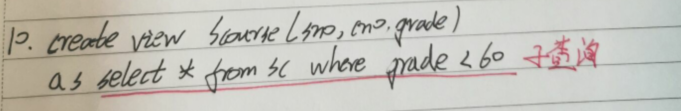 10. create view Scourse (sno, cno, grade)
as select * from sc where grade < 60 子查询